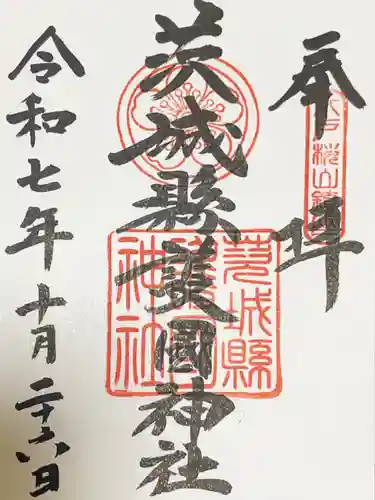 奉拝
水戸桜山鎮座
茨城縣護國神社
茨城縣護國神社
令和七年十月二十六日